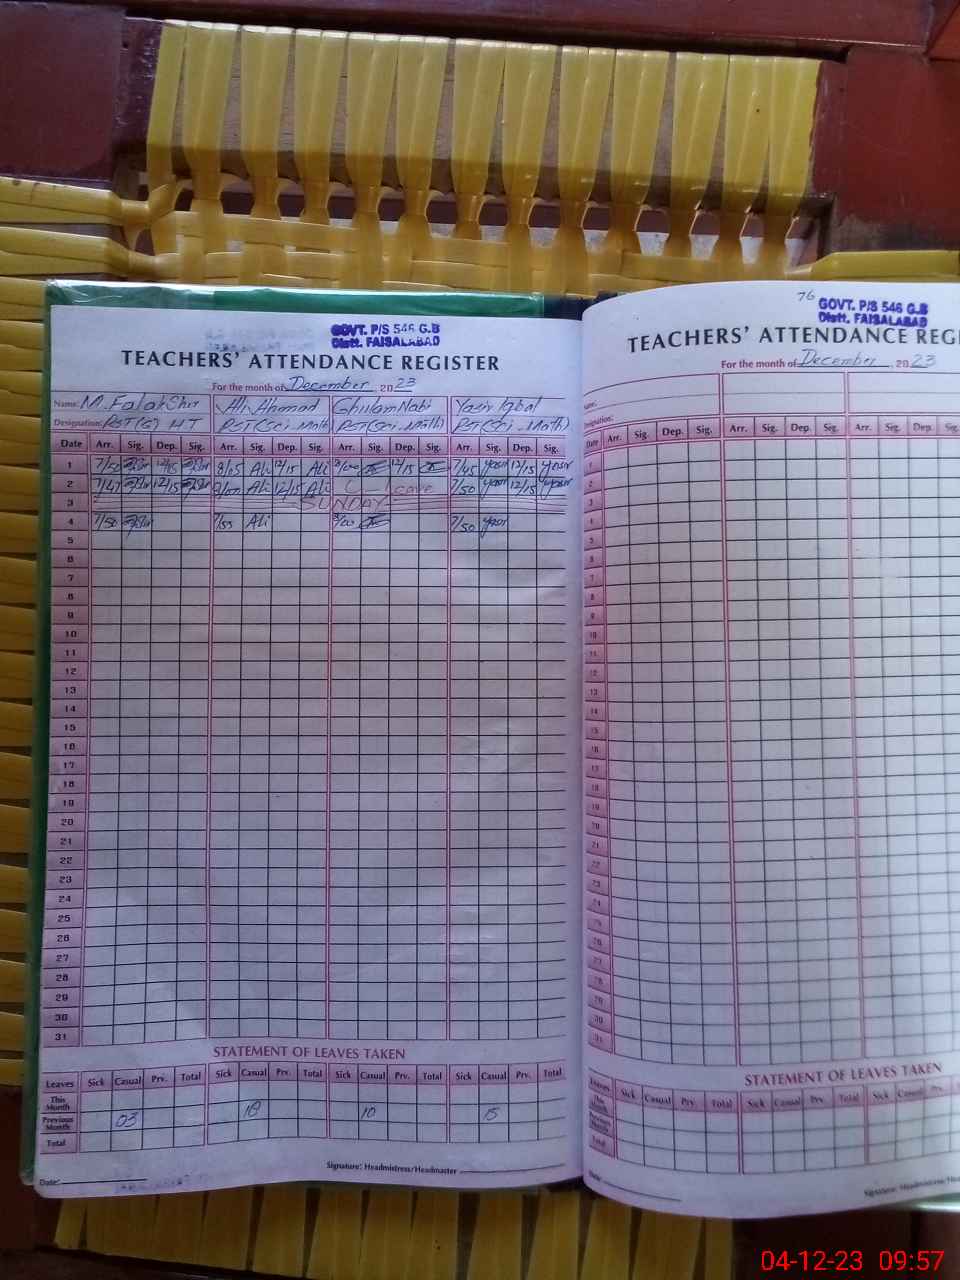 GOVT. P/S 546 G.B
Distt. FAISALABAD
TEACHERS' ATTENDANCE REGISTER
For the month of December, 2023
Name: M. Falak Sher Ali Ahmad Ghulam Nabi Yasir Iqbal
Designation: PST(G) HT PST(Sci-Math) PST(Sci-Math) PST(Sci-Math)
Date Arr. Sig. Dep. Sig. Arr. Sig. Dep. Sig. Arr. Sig. Dep. Sig. Arr. Sig. Dep. Sig.
1 7/50 12/15 8/05 Ali 12/15 Ali 8/00 12/15 7/45 yasir 12/15 yasir
2 7/47 12/15 8/00 Ali 12/15 Ali C- Leave 7/50 yasir 12/15 yasir
3 SUNDAY
4 7/50 7/55 Ali 8/00 7/50 yasir
5
6
7
8
9
10
11
12
13
14
15
16
17
18
19
20
21
22
23
24
25
26
27
28
29
30
31
STATEMENT OF LEAVES TAKEN
Leaves Sick Casual Prv. Total Sick Casual Prv. Total Sick Casual Prv. Total Sick Casual Prv. Total
This Month
Previous Month 03 10 10 15
Total
Signature: Headmistress/Headmaster
Date:
76
GOVT. P/S 546 G.B
Distt. FAISALABAD
TEACHERS' ATTENDANCE REG
For the month of December, 2023
Name:
Designation:
Date Arr. Sig. Dep. Sig. Arr. Sig. Dep. Sig. Arr. Sig. Dep. Sig.
1
2
3
4
5
6
7
8
9
10
11
12
13
14
15
16
17
18
19
20
21
22
23
24
25
26
27
28
29
30
31
STATEMENT OF LEAVES TAKEN
Leaves Sick Casual Prv. Total Sick Casual Prv. Total Sick Casual Prv.
This Month
Previous Month
Total
Date:
Signature: Headmistress/Hea
04-12-23 09:57